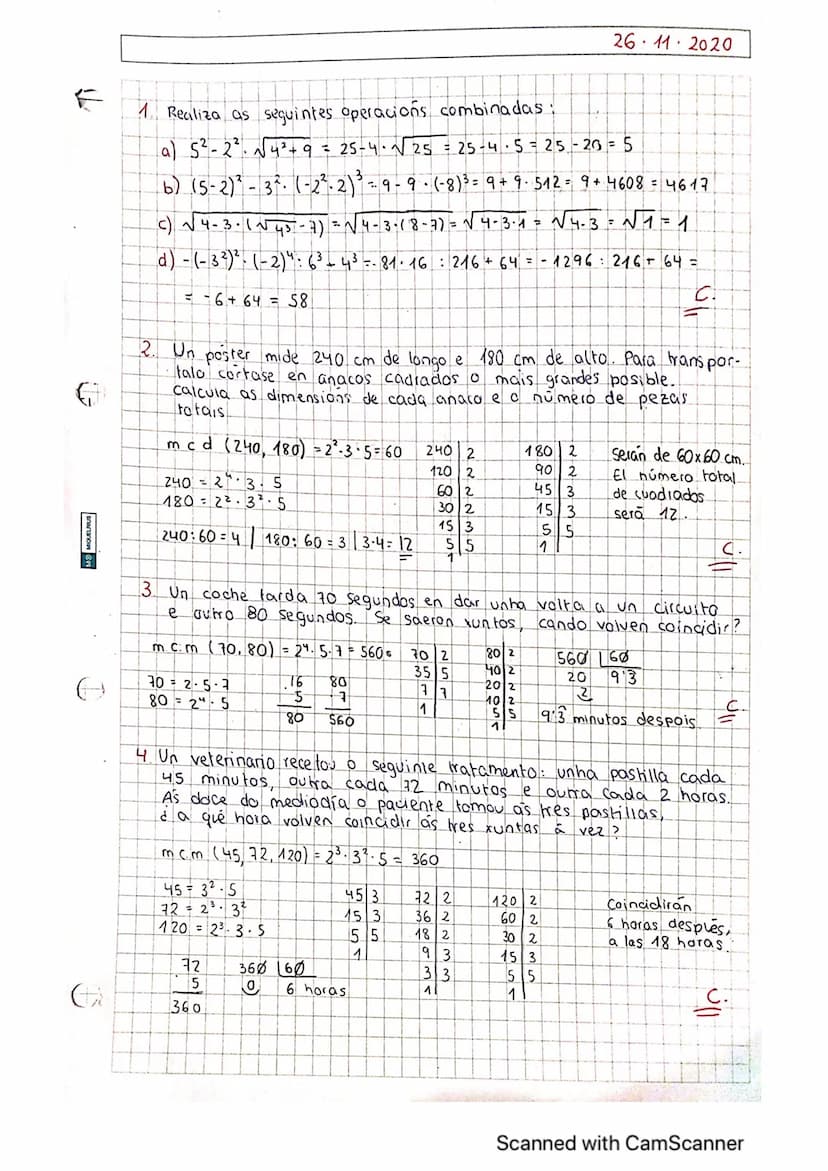 26·11·2020
1. Realiza as seguintes operacións combinadas:
a) 5² - 2² · √4²+9 = 25-4·√25 = 25-4·5 = 25-20 = 5
b) (5-2)² - 3² · (-2²·2)³ = 9 - 9 · (-8)³ = 9 + 9 · 512 = 9 + 4608 = 4617
c) √4-3·(√4³-7) = √4-3·(8-7) = √4-3·1 = √4-3 = √1 = 1
d) -(-3²)² · (-2)⁴ : 6³ + 4³ = -81·16 : 216 + 64 = -1296 : 216 + 64 =
= -6 + 64 = 58
C.
2. Un póster mide 240 cm de longo e 180 cm de alto. Para transpor-
talo córtase en anacos cadrados o mais grandes posible.
calcula as dimensións de cada anaco e o número de pezas
totais
m c d (240, 180) = 2²·3·5 = 60
240 = 2⁴·3·5
180 = 2²·3²·5
240:60 = 4 | 180:60 = 3 | 3·4 = 12
240 | 2
120 | 2
60 | 2
30 | 2
15 | 3
5 | 5
1
180 | 2
90 | 2
45 | 3
15 | 3
5 | 5
1
Serán de 60x60 cm.
El número total
de cuadrados
será 12.
C.
MIQUELRIUS
3. Un coche tarda 70 segundos en dar unha volta a un circuíto
e outro 80 segundos. Se saeron xuntos, cando volven coincidir?
m c.m (70, 80) = 2⁴·5·7 = 560
70 = 2·5·7
80 = 2⁴·5
16
5
80
80
7
560
70 | 2
35 | 5
7 | 7
1
80 | 2
40 | 2
20 | 2
10 | 2
5 | 5
1
560 | 60
20 9'3
2
9'3 minutos despois.
C.
4. Un veterinario recetou o seguinte tratamento: unha pastilla cada
45 minutos, outra cada 72 minutos e outra cada 2 horas.
Ás doce do mediodía o paciente tomou as tres pastillas,
¿a qué hora volven coincidir as tres xuntas á vez?
m c.m (45, 72, 120) = 2³·3²·5 = 360
45 = 3²·5
72 = 2³·3²
120 = 2³·3·5
72
5
360
360 | 60
0 6 horas
45 | 3
15 | 3
5 | 5
1
72 | 2
36 | 2
18 | 2
9 | 3
3 | 3
1
120 | 2
60 | 2
30 | 2
15 | 3
5 | 5
1
Coincidirán
6 horas despues,
a las 18 horas.
C.
Scanned with CamScanner